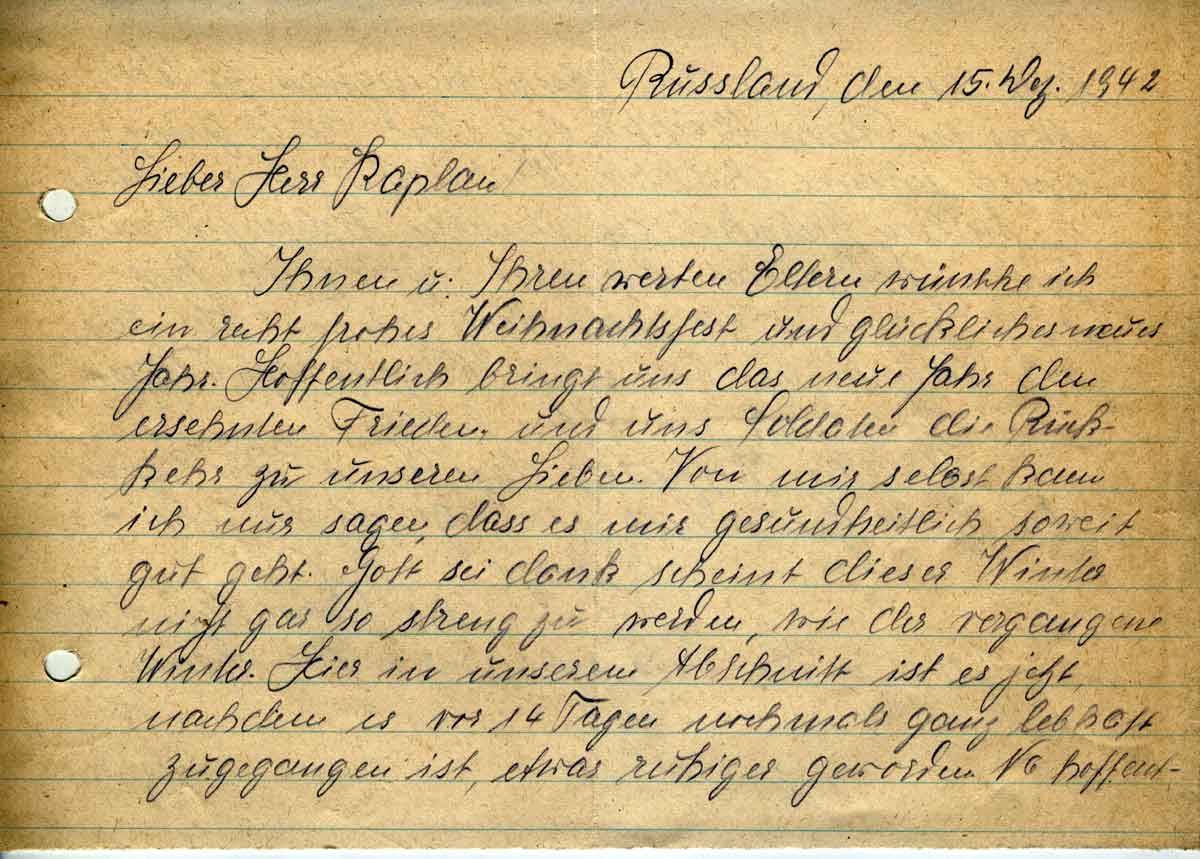 Russland, den 15. Dez. 1942
Lieber Herr Kaplan!
Ihnen u. Ihren werten Eltern wünsche ich
ein recht frohes Weihnachtsfest und glückliches neues
Jahr. Hoffentlich bringt uns das neue Jahr den
ersehnten Frieden, und uns Soldaten die Rück-
kehr zu unseren Lieben. Von mir selbst kann
ich nur sagen, dass es mir gesundheitlich soweit
gut geht. Gott sei dank scheint dieser Winter
nicht gar so streng zu werden, wie der vergangene
Winter. Hier in unserem Abschnitt ist es jetzt,
nachdem es vor 14 Tagen nochmals ganz lebhaft
zugegangen ist, etwas ruhiger geworden. Na hoffent-